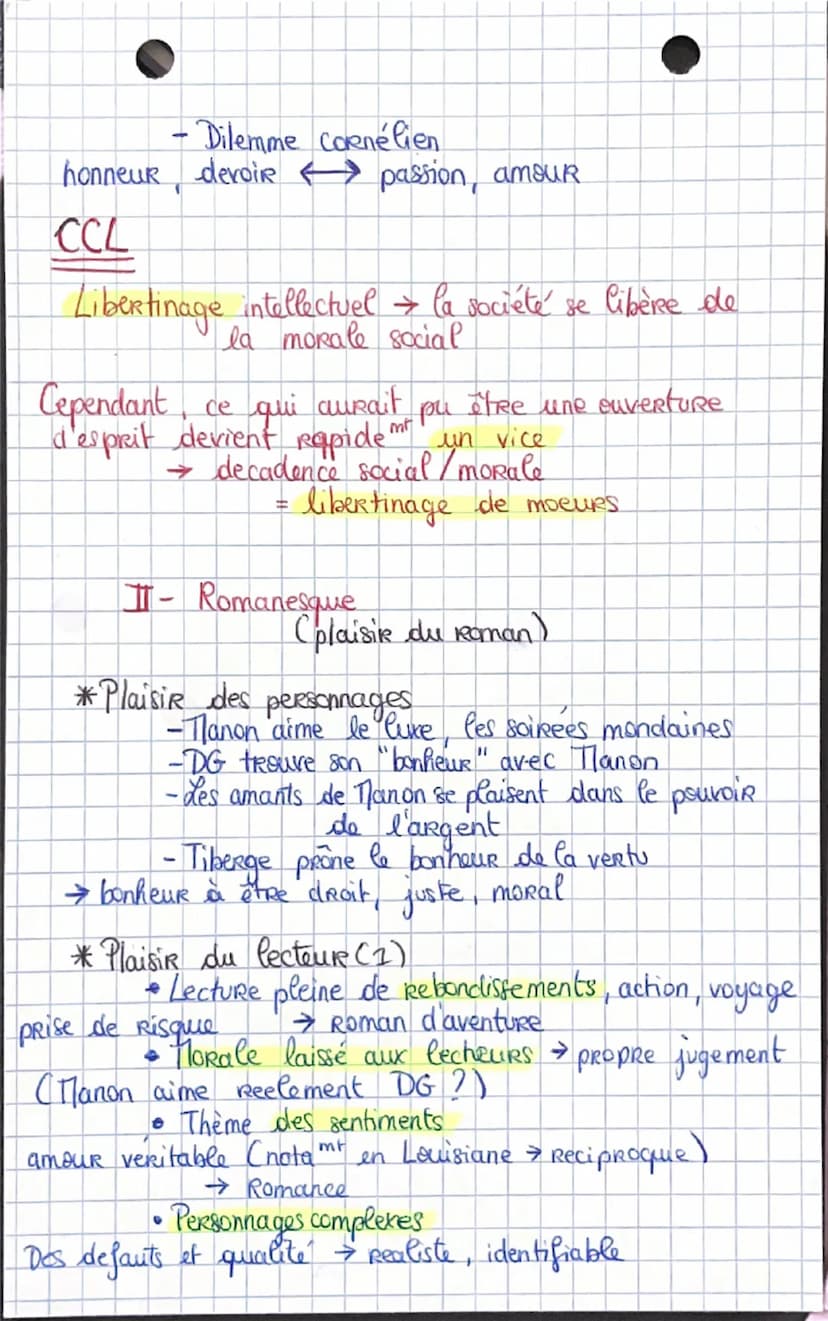 - Dilemme cornélien
honneur, devoir ↔ passion, amour
CCL
Libertinage intellectuel → la société se libère de
la morale social
Cependant, ce qui aurait pu être une ouverture
d'esprit devient rapidemt un vice
→ decadence social/morale
= libertinage de moeurs
II - Romanesque
(plaisir du roman)
* Plaisir des personnages
- Manon aime le luxe, les soirées mondaines
- DG trouve son "bonheur" avec Manon
- Les amants de Manon se plaisent dans le pouvoir
de l'argent
- Tiberge prône le bonheur de la vertu
→ bonheur à être droit, juste, moral
* Plaisir du lecteur (1)
• Lecture pleine de rebondissements, action, voyage
prise de risque → Roman d'aventure
• Morale laissé aux lecheurs → propre jugement
(Manon aime reelement DG ?)
• Thème des sentiments
amour véritable (notamt en Louisiane → reciproque)
→ Romance
• Personnages complexes
Des defauts et qualité → realiste, identifiable